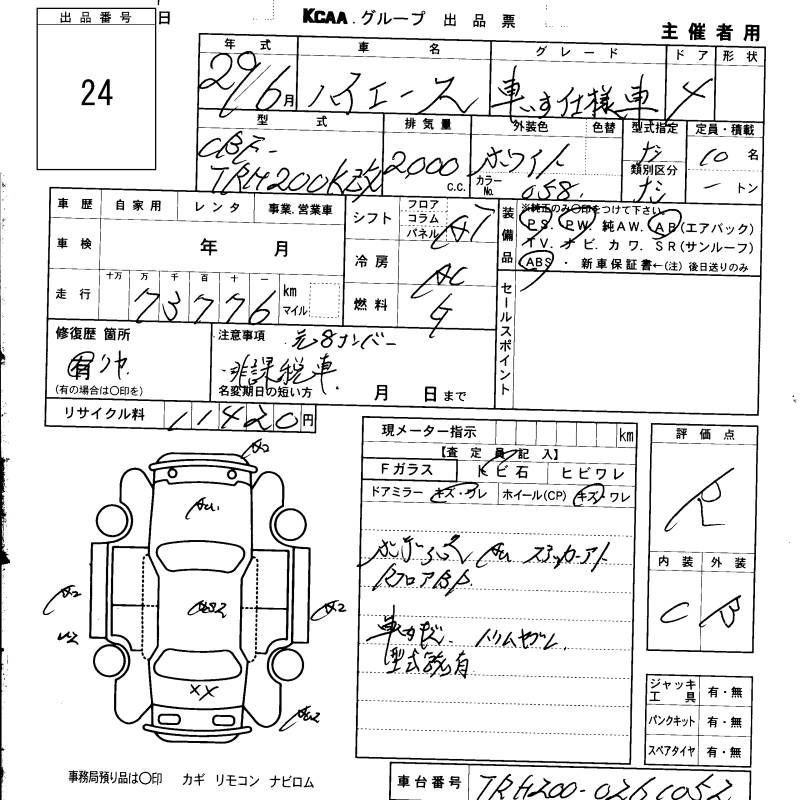 出品番号 日 KCAA.グループ 出品票 主催者用
24
年式 車名 グレード ドア 形状
29/6月 ハイエース 車いす仕様車 4
型式 排気量 外装色 色替 型式指定 定員・積載
CBF-
TRH200K改 2,000 C.C. ホワイト ナシ 10名
カラーNo. 058 類別区分 ナシ － トン
車歴 自家用 レンタ 事業.営業車 シフト フロア コラム パネル AT
車検 年 月 冷房 AC
走行 十万 万 千 百 十 一
73776 km マイル 燃料 G
装備品 ※純正のみ〇印をつけて下さい。
PS. PW. 純AW. AB(エアバック)
TV. ナビ. カワ. SR(サンルーフ)
ABS ・ 新車保証書←(注) 後日送りのみ
セールスポイント
修復歴 箇所 注意事項 元8ナンバー
有 リヤ 非課税車
(有の場合は〇印を) 名変期日の短い方 月 日まで
リサイクル料 11420円
現メーター指示 km
【査定員記入】
Fガラス トビ石 ヒビワレ
ドアミラー キズ・ワレ ホイール(CP) キズ・ワレ
RフロアBP
トリムワレ
評価点
R
内装 外装
C B
A2
A2
A2
XX
ジャッキ工具 有・無
パンクキット 有・無
スペアタイヤ 有・無
事務局預り品は〇印 カギ リモコン ナビロム
車台番号 TRH200-0261052